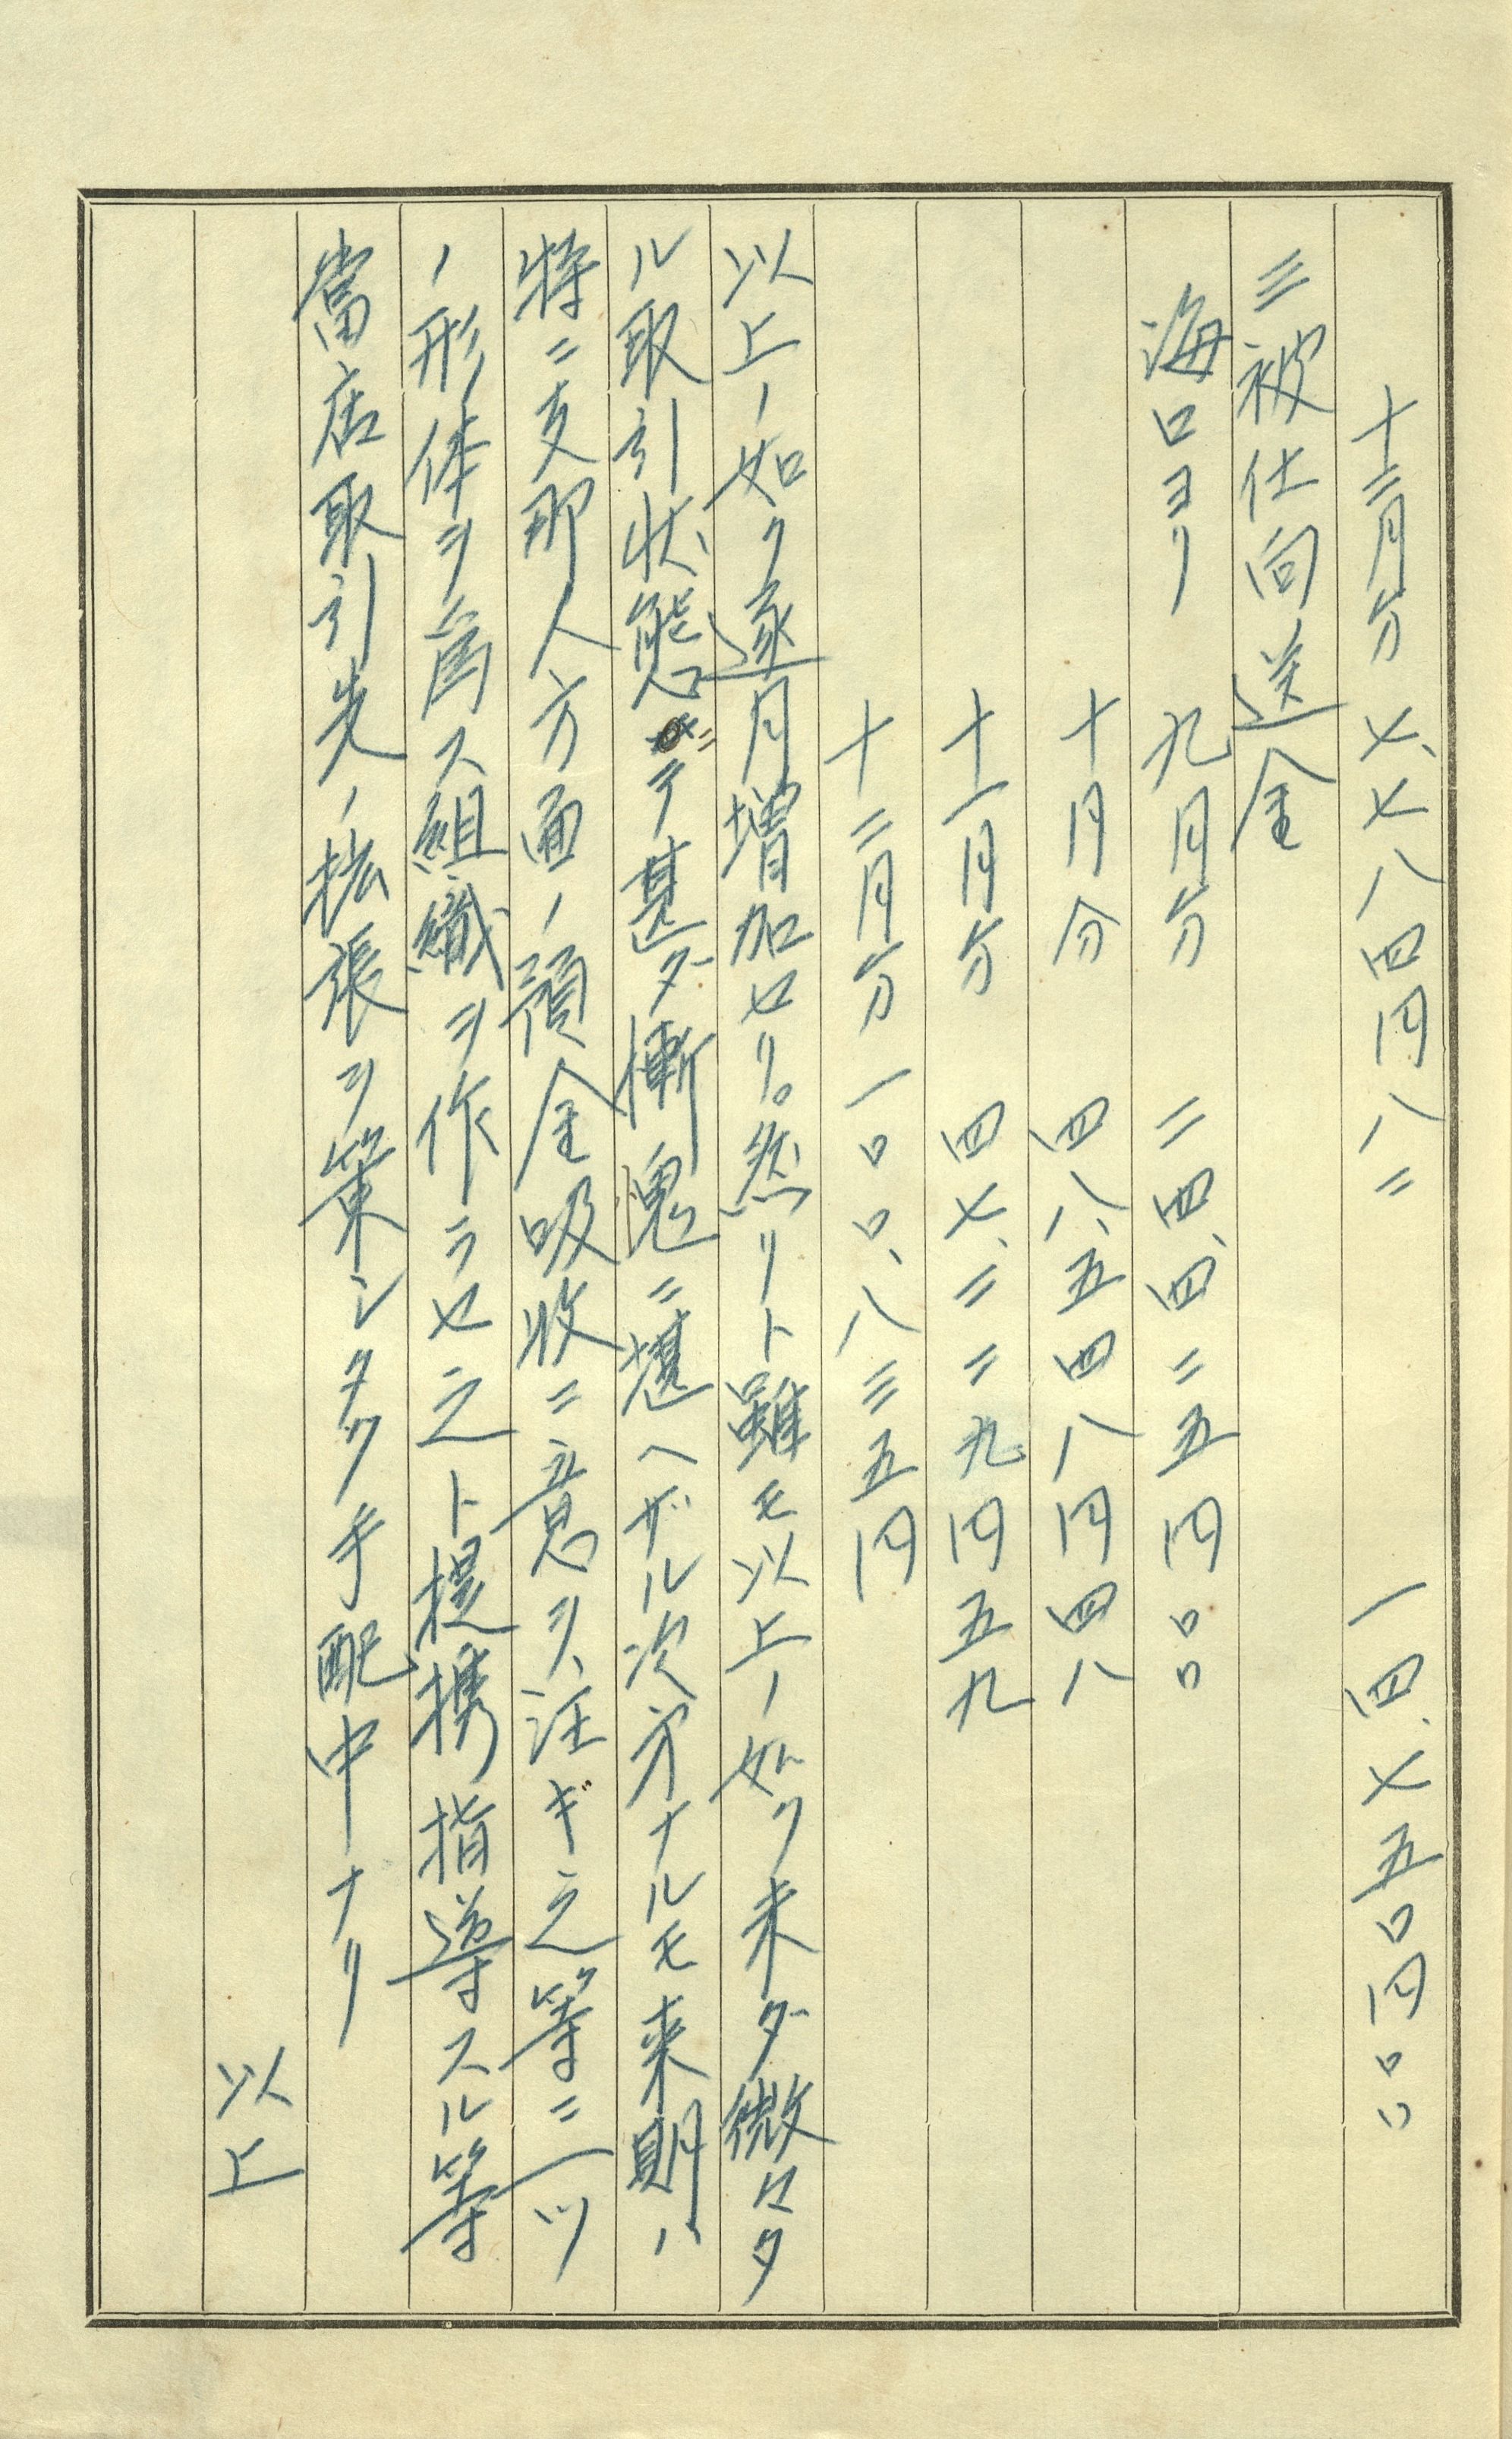 十二月分 七、七八四円八二 一四、七五〇円〇〇
三被仕向送金
海口ヨリ 九月分 二四、四二五円〇〇
十月分 四八、五四八円四八
十一月分 四七、二二九円五九
十二月分 一〇〇、八三五円
以上ノ如ク逐月増加セリ。然リト雖モ以上ノ如ク未ダ微々タ
ル取引状態ニテ甚ダ慚愧ニ堪ヘザル次第ナルモ来期ハ
特ニ支那人方面ノ預金吸收ニ意ヲ注ギ之等ニ一ツ
ノ形体ヲ為ス組織ヲ作ラセ之ト提携指導スル等
當店取引先ノ拡張ヲ策シタク手配中ナリ
以上